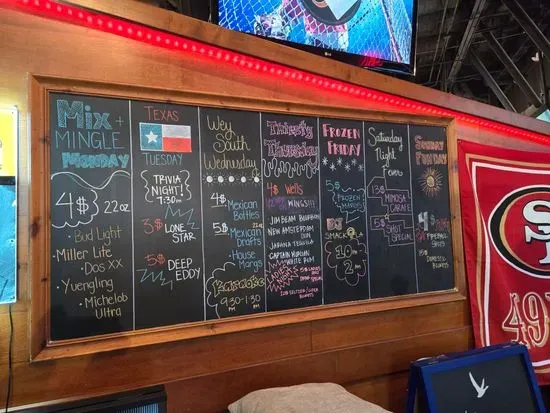 Mix +
MINGLE
MONDAY
4$ 22oz
• Bud Light
• Miller Lite
• Dos XX
• Yuengling
• Michelob
Ultra
TEXAS
TUESDAY
TRIVIA
NIGHT!
7:30PM
3$ LONE
STAR
5$ DEEP
EDDY
Wey
South
Wednesday
4$ Mexican
Bottles
5$ Mexican
Drafts
House
Margs
Karaoke
9:30-1:30
PM PM
Thirsty
Thursday
4$ Wells
WINGS!!!
JIM BEAM BOURBON
NEW AMSTERDAM
GIN
JARANA TEQUILA
CAPTAIN MORGAN
WHITE RUM
LADIES
FROZEN
FRIDAY
5$
FROZEN
DJ
SHACK
10-2
PM
Saturday
Night
Fever
13$
MIMOSA
CARAFE
5$
SHOT
SPECIAL
SUNDAY
FUNDAY
4$
SF
49